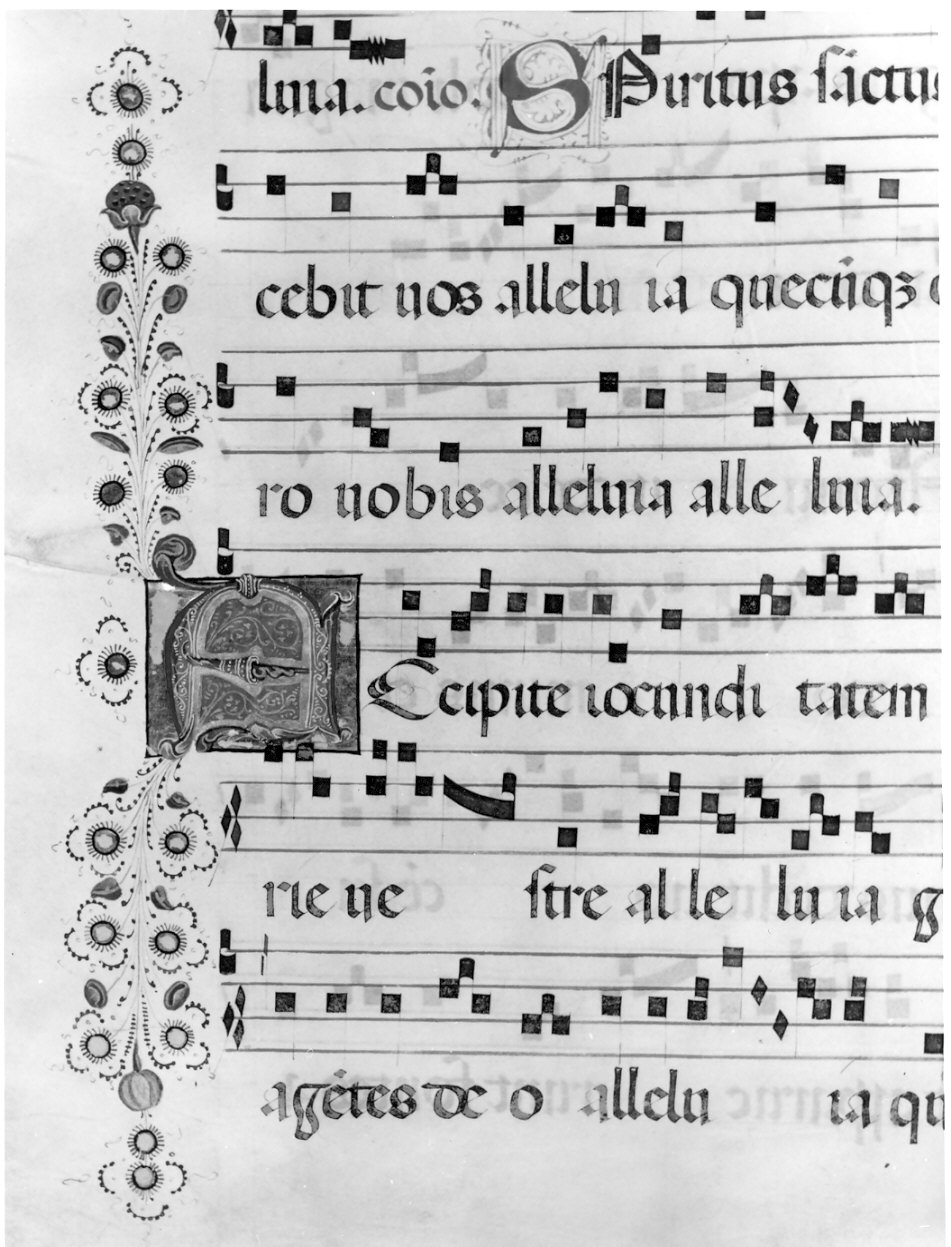 luia. coio. SPiritus sāctus
cebit uos allelu ia quecūqz
ro uobis alleluia alle luia.
AEcipite iocundi tatem
rie ue stre al le lu ia g
agētes de o allelu ia qu